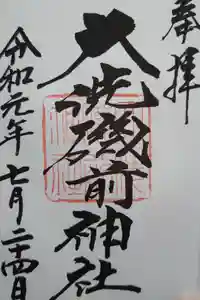 奉拝
大洗磯前神社
令和元年七月二十四日